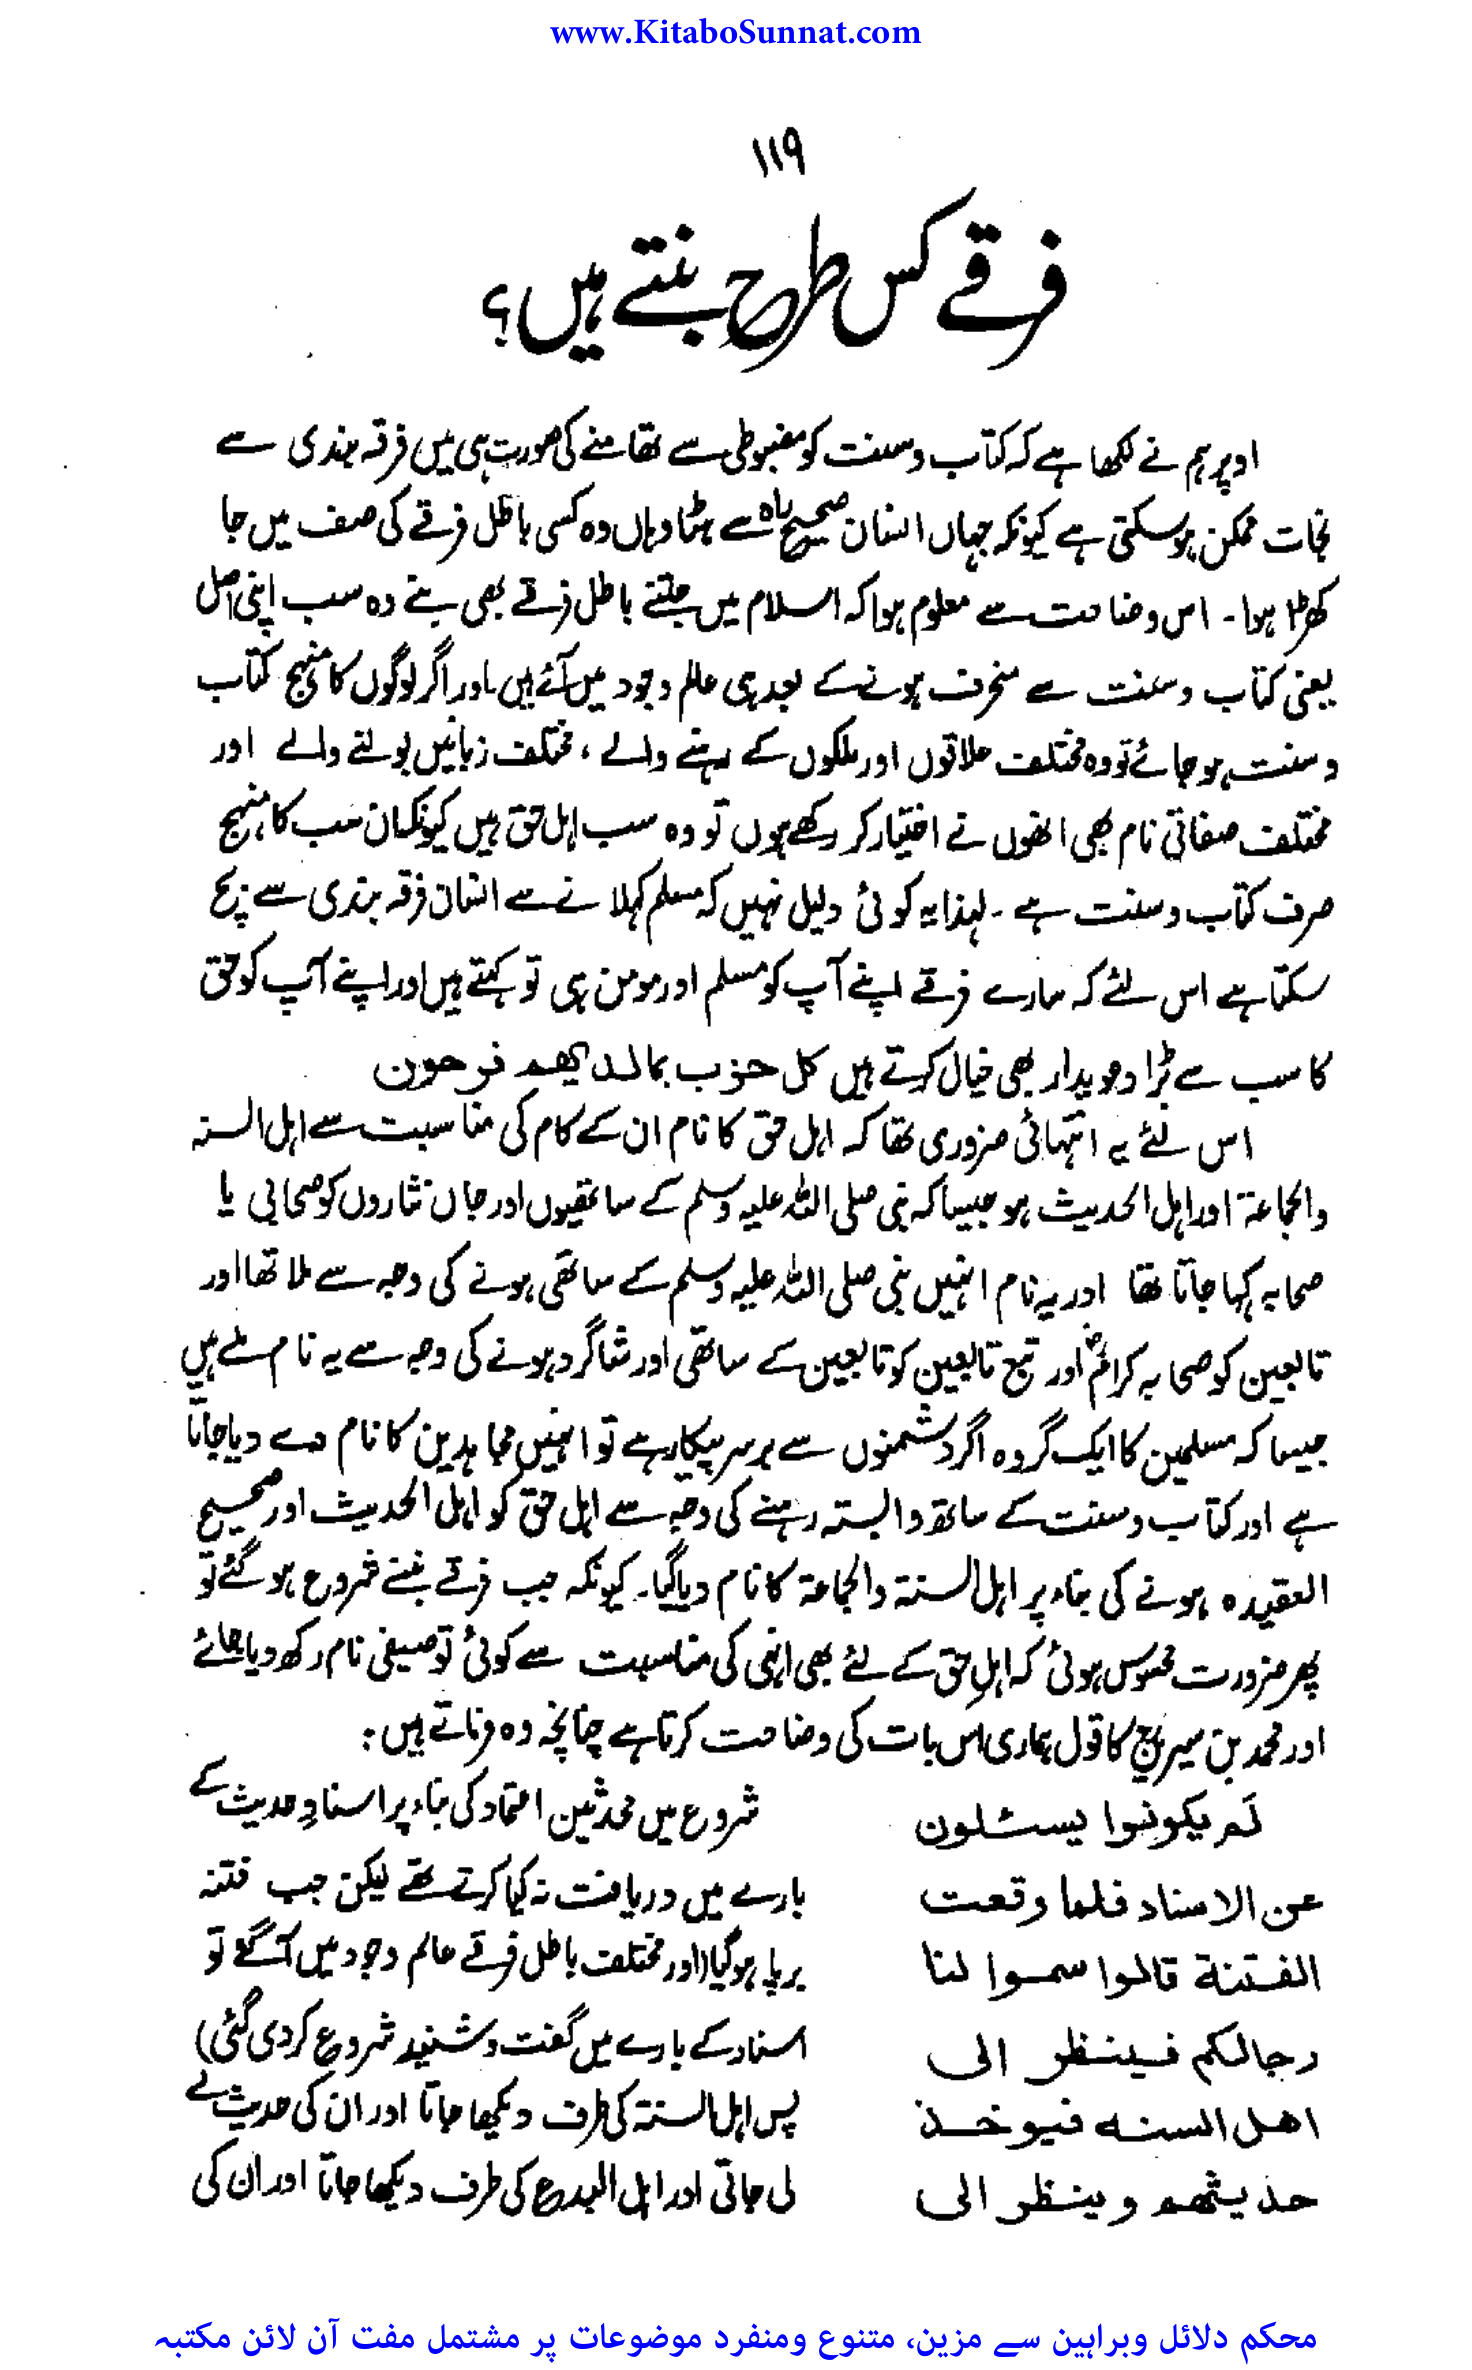 www.KitaboSunnat.com
۱۱۹
فرقے کس طرح بنتے ہیں؟
اوپر ہم نے لکھا ہے کہ کتاب و سنت کو مضبوطی سے تھامنے کی صورت ہی میں فرقہ بندی سے
نجات ممکن ہو سکتی ہے کیونکہ جہاں انسان صحیح راہ سے ہٹا وہاں وہ کسی باطل فرقے کی صف میں جا
کھڑا ہوا۔ اس وضاحت سے معلوم ہوا کہ اسلام میں جتنے باطل فرقے بھی بنے وہ سب اپنی اصل
یعنی کتاب و سنت سے منحرف ہونے کے بعد ہی عالم وجود میں آئے ہیں اور اگر لوگوں کا منہج کتاب
و سنت ہو جائے تو وہ مختلف علاقوں اور ملکوں کے رہنے والے ، مختلف زبانیں بولنے والے اور
مختلف صفاتی نام بھی انھوں نے اختیار کر رکھے ہوں تو وہ سب اہل حق ہیں کیونکہ ان سب کا منہج
صرف کتاب و سنت ہے ۔ لہذا یہ کوئی دلیل نہیں کہ مسلم کہلانے سے انسان فرقہ بندی سے بچ
سکتا ہے اس لئے کہ سارے فرقے اپنے آپ کو مسلم اور مومن ہی تو کہتے ہیں اور اپنے آپ کو حق
کا سب سے بڑا دعویدار بھی خیال کرتے ہیں کل حزب بمالدیھم فرحون
اس لئے یہ انتہائی ضروری تھا کہ اہل حق کا نام ان کے کام کی مناسبت سے اہل السنہ
والجماعۃ اور اہل الحدیث ہو جیسا کہ نبی صلی اللہ علیہ وسلم کے ساتھیوں اور جاں نثاروں کو صحابی یا
صحابہ کہا جاتا تھا اور یہ نام انہیں نبی صلی اللہ علیہ وسلم کے ساتھی ہونے کی وجہ سے ملا تھا اور
تابعین کو صحابہ کرامؓ اور تبع تابعین کو تابعین کے ساتھی اور شاگرد ہونے کی وجہ سے یہ نام ملے ہیں
جیسا کہ مسلمین کا ایک گروہ اگر دشمنوں سے برسر پیکار ہے تو انہیں مجاہدین کا نام دے دیا جاتا
ہے اور کتاب و سنت کے ساتھ وابستہ رہنے کی وجہ سے اہل حق کو اہل الحدیث اور صحیح
العقیدہ ہونے کی بناء پر اہل السنۃ والجماعۃ کا نام دیا گیا۔ کیونکہ جب فرقے بننے شروع ہو گئے تو
پھر ضرورت محسوس ہوئی کہ اہلِ حق کے لئے بھی انہی کی مناسبت سے کوئی توصیفی نام رکھ دیا جائے
اور محمد بن سیرینؒ کا قول ہماری اس بات کی وضاحت کرتا ہے چنانچہ وہ فرماتے ہیں :
لم یکونوا یسئلون
عن الاسناد فلما وقعت
الفتنة قالوا سموا لنا
رجالکم فینظر الی
اهل السنه فیوخذ
حدیثهم وینظر الی
شروع میں محدثین اعتماد کی بناء پر اسنادِ حدیث کے
بارے میں دریافت نہ کیا کرتے تھے لیکن جب فتنہ
برپا ہو گیا (اور مختلف باطل فرقے عالم وجود میں آ گئے تو
اسناد کے بارے میں گفت و شنید شروع کر دی گئی)
پس اہل السنۃ کی طرف دیکھا جاتا اور ان کی حدیث لے
لی جاتی اور اہل البدع کی طرف دیکھا جاتا اور ان کی
محکم دلائل وبراہین سے مزین، متنوع ومنفرد موضوعات پر مشتمل مفت آن لائن مکتبہ